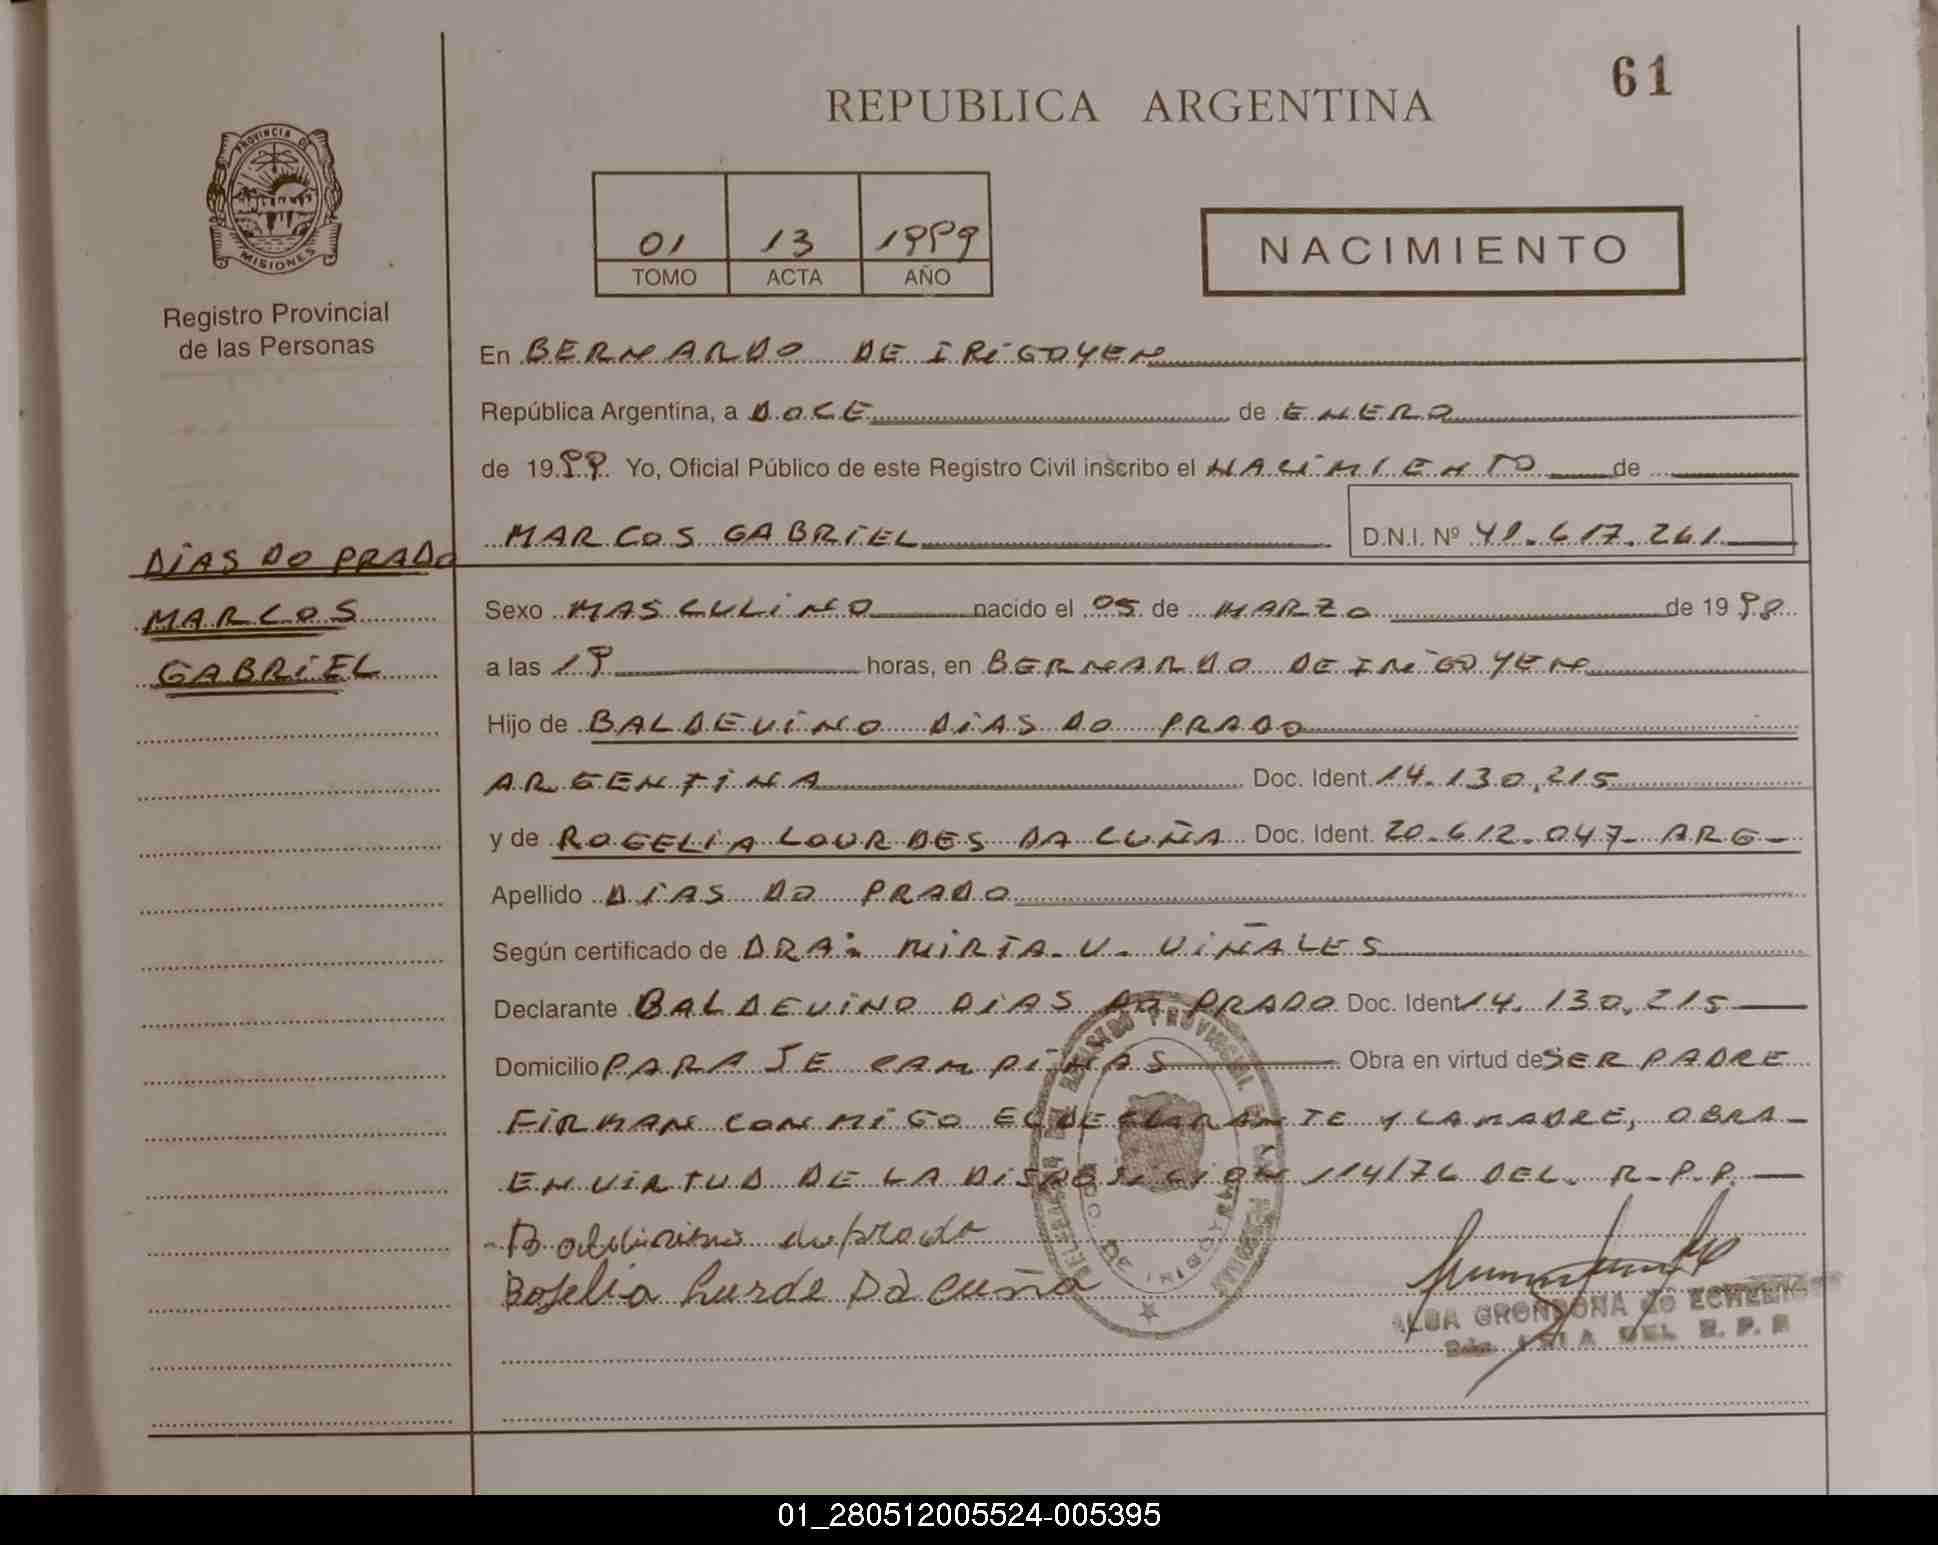 61
REPUBLICA ARGENTINA
PROVINCIA DE
MISIONES
Registro Provincial
de las Personas
01 13 1999
TOMO ACTA AÑO
NACIMIENTO
En BERNARDO DE IRIGOYEN
República Argentina, a DOCE de ENERO
de 1999. Yo, Oficial Público de este Registro Civil inscribo el NACIMIENTO de
MARCOS GABRIEL D.N.I. Nº 41.617.261
DIAS DO PRADO
MARCOS
GABRIEL
Sexo MASCULINO nacido el 05 de MARZO de 1998
a las 19 horas, en BERNARDO DE IRIGOYEN
Hijo de BALDEVINO DIAS DO PRADO
ARGENTINA Doc. Ident. 14.130.215
y de ROGELIA LOURDES DA CUÑA Doc. Ident. 20.612.047- ARG-
Apellido DIAS DO PRADO
Según certificado de DRA: MIRTA. V. VIÑALES
Declarante BALDEVINO DIAS DO PRADO Doc. Ident 14.130.215
Domicilio PARAJE CAMPIÑAS Obra en virtud de SER PADRE
FIRMAN CONMIGO EL DECLARANTE Y LA MADRE, OBRA-
EN VIRTUD DE LA DISPOSICION 114/76 DEL. R.P.P.
do prado
Rogelia Lurde Da cuña
ALBA GRONDONA de
DEL R. P. P
01_280512005524-005395